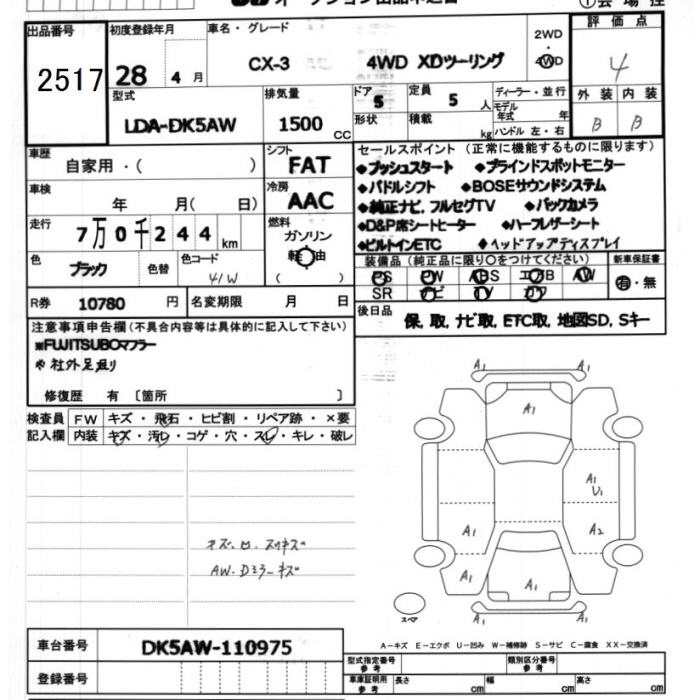 出品番号
2517
初度登録年月
28 4 月
車名・グレード
CX-3 4WD XDツーリング
2WD
・
4WD
評価点
4
外装 内装
B B
型式
LDA-DK5AW
排気量
1500 CC
ドア
5
定員
5 人
形状
積載
kg
ディーラー・並行
モデル年式 年
ハンドル 左・右
車歴
自家用・( )
シフト
FAT
車検
年 月( 日)
冷房
AAC
走行
7万0千244km
燃料
ガソリン
軽 油
( )
色
ブラック
色替
色コード
41W
R券 10780 円
名変期限 月 日
セールスポイント(正常に機能するものに限ります)
◆プッシュスタート ◆ブラインドスポットモニター
◆パドルシフト ◆BOSEサウンドシステム
◆純正ナビ,フルセグTV ◆バックカメラ
◆D&P席シートヒーター ◆ハーフレザーシート
◆ビルトインETC ◆ヘッドアップディスプレイ
装備品(純正品に限り○をつけてください)
PS PW ABS エアB AW
SR ナビ TV カワ
新車保証書
有・無
後日品
保,取,ナビ取,ETC取,地図SD,Sキー
注意事項申告欄(不具合内容等は具体的に記入して下さい)
※FUJITSUBOマフラー
※社外足廻り
修復歴 有 〔箇所 〕
検査員記入欄
FW キズ・飛石・ヒビ割・リペア跡・×要
内装 キズ・汚レ・コゲ・穴・スレ・キレ・破レ
AW・Dミラーキズ
A1
A1
A1
U1
A1
A2
A1
A1
A1
スペア
A-キズ E-エクボ U-凹み W-補修跡 S-サビ C-腐食 XX-交換済
車台番号
DK5AW-110975
登録番号
型式指定番号
参考
類別区分番号
参考
車庫証明用
参考
長さ cm 幅 cm 高さ cm